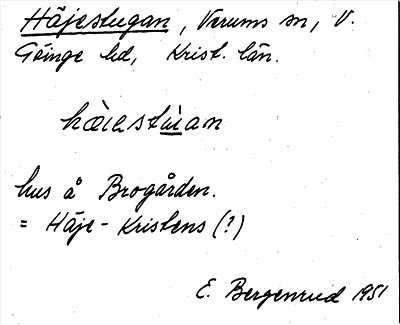 Häjestugan, Verums sn, V.
Göinge hd, Krist. län.
hæ̀ıestu̇ıan
hus å Brogården.
= Häje-Kristens (?)
E. Bergenrud 1951